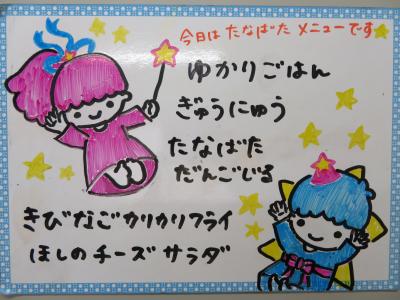 今日は たなばた メニューです
ゆかりごはん
ぎゅうにゅう
たなばた
だんごじる
きびなごカリカリフライ
ほしのチーズサラダ